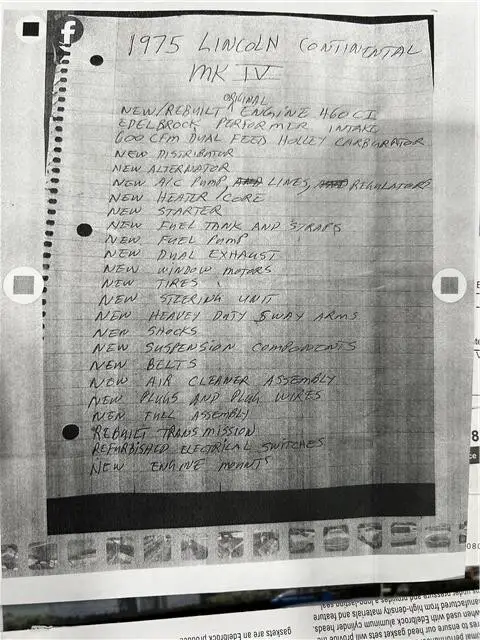 1975 LINCOLN CONTINENTAL
MK IV
ORIGINAL
NEW/REBUILT ^ ENGINE 460 CI
EDELBROCK PERFORMER INTAKE
600 CFM DUAL FEED HOLLEY CARBURATOR
NEW DISTRIBUTOR
NEW ALTERNATOR
NEW A/C PUMP AND LINES, AND REGULATORS
NEW HEATER/CORE
NEW STARTER
NEW FUEL TANK AND STRAPS
NEW FUEL PUMP
NEW DUAL EXHAUST
NEW WINDOW MOTORS
NEW TIRES
NEW STEERING UNIT
NEW HEAVEY DUTY SWAY ARMS
NEW SHOCKS
NEW SUSPENSION COMPONENTS
NEW BELTS
NEW AIR CLEANER ASSEMBLY
NEW PLUGS AND PLUG WIRES
NEW FUEL ASSEMBLY
REBUILT TRANSMISSION
REFURBISHED ELECTRICAL SWITCHES
NEW ENGINE MOUNTS
gaskets are an Edelbrock
under pressure and provides a long-lasting seal
manufactured from high-density materials and feature
when used with Edelbrock Aluminum cylinder heads.
to ensure our head gasket set will provide the